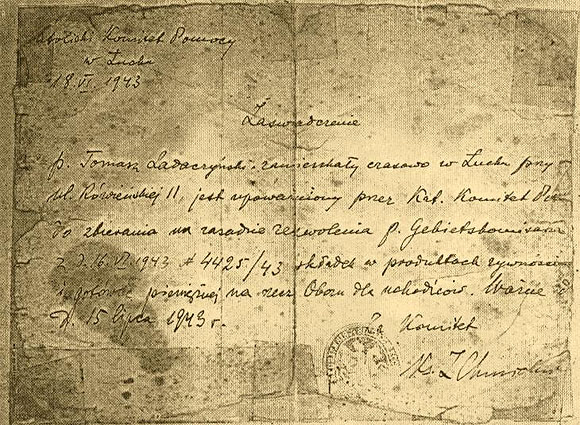 Katolicki Komitet Pomocy
w Łucku
18.VI.1943
Zaświadczenie
p. Tomasz Ladaczyński zamieszkały czasowo w Łucku przy
ul. 11, jest upoważniony przez Kat. Komitet Po-
do zbierania na zasadzie zezwolenia p. Gebietskomisarza
z d. 16.VI.1943 # 4425/43 składek w produktach żywności
i gotówce pieniężnej na rzecz Obozu dla uchodźców. Ważne
d. 15 lipca 1943 r.
Za Komitet
Ks. Z